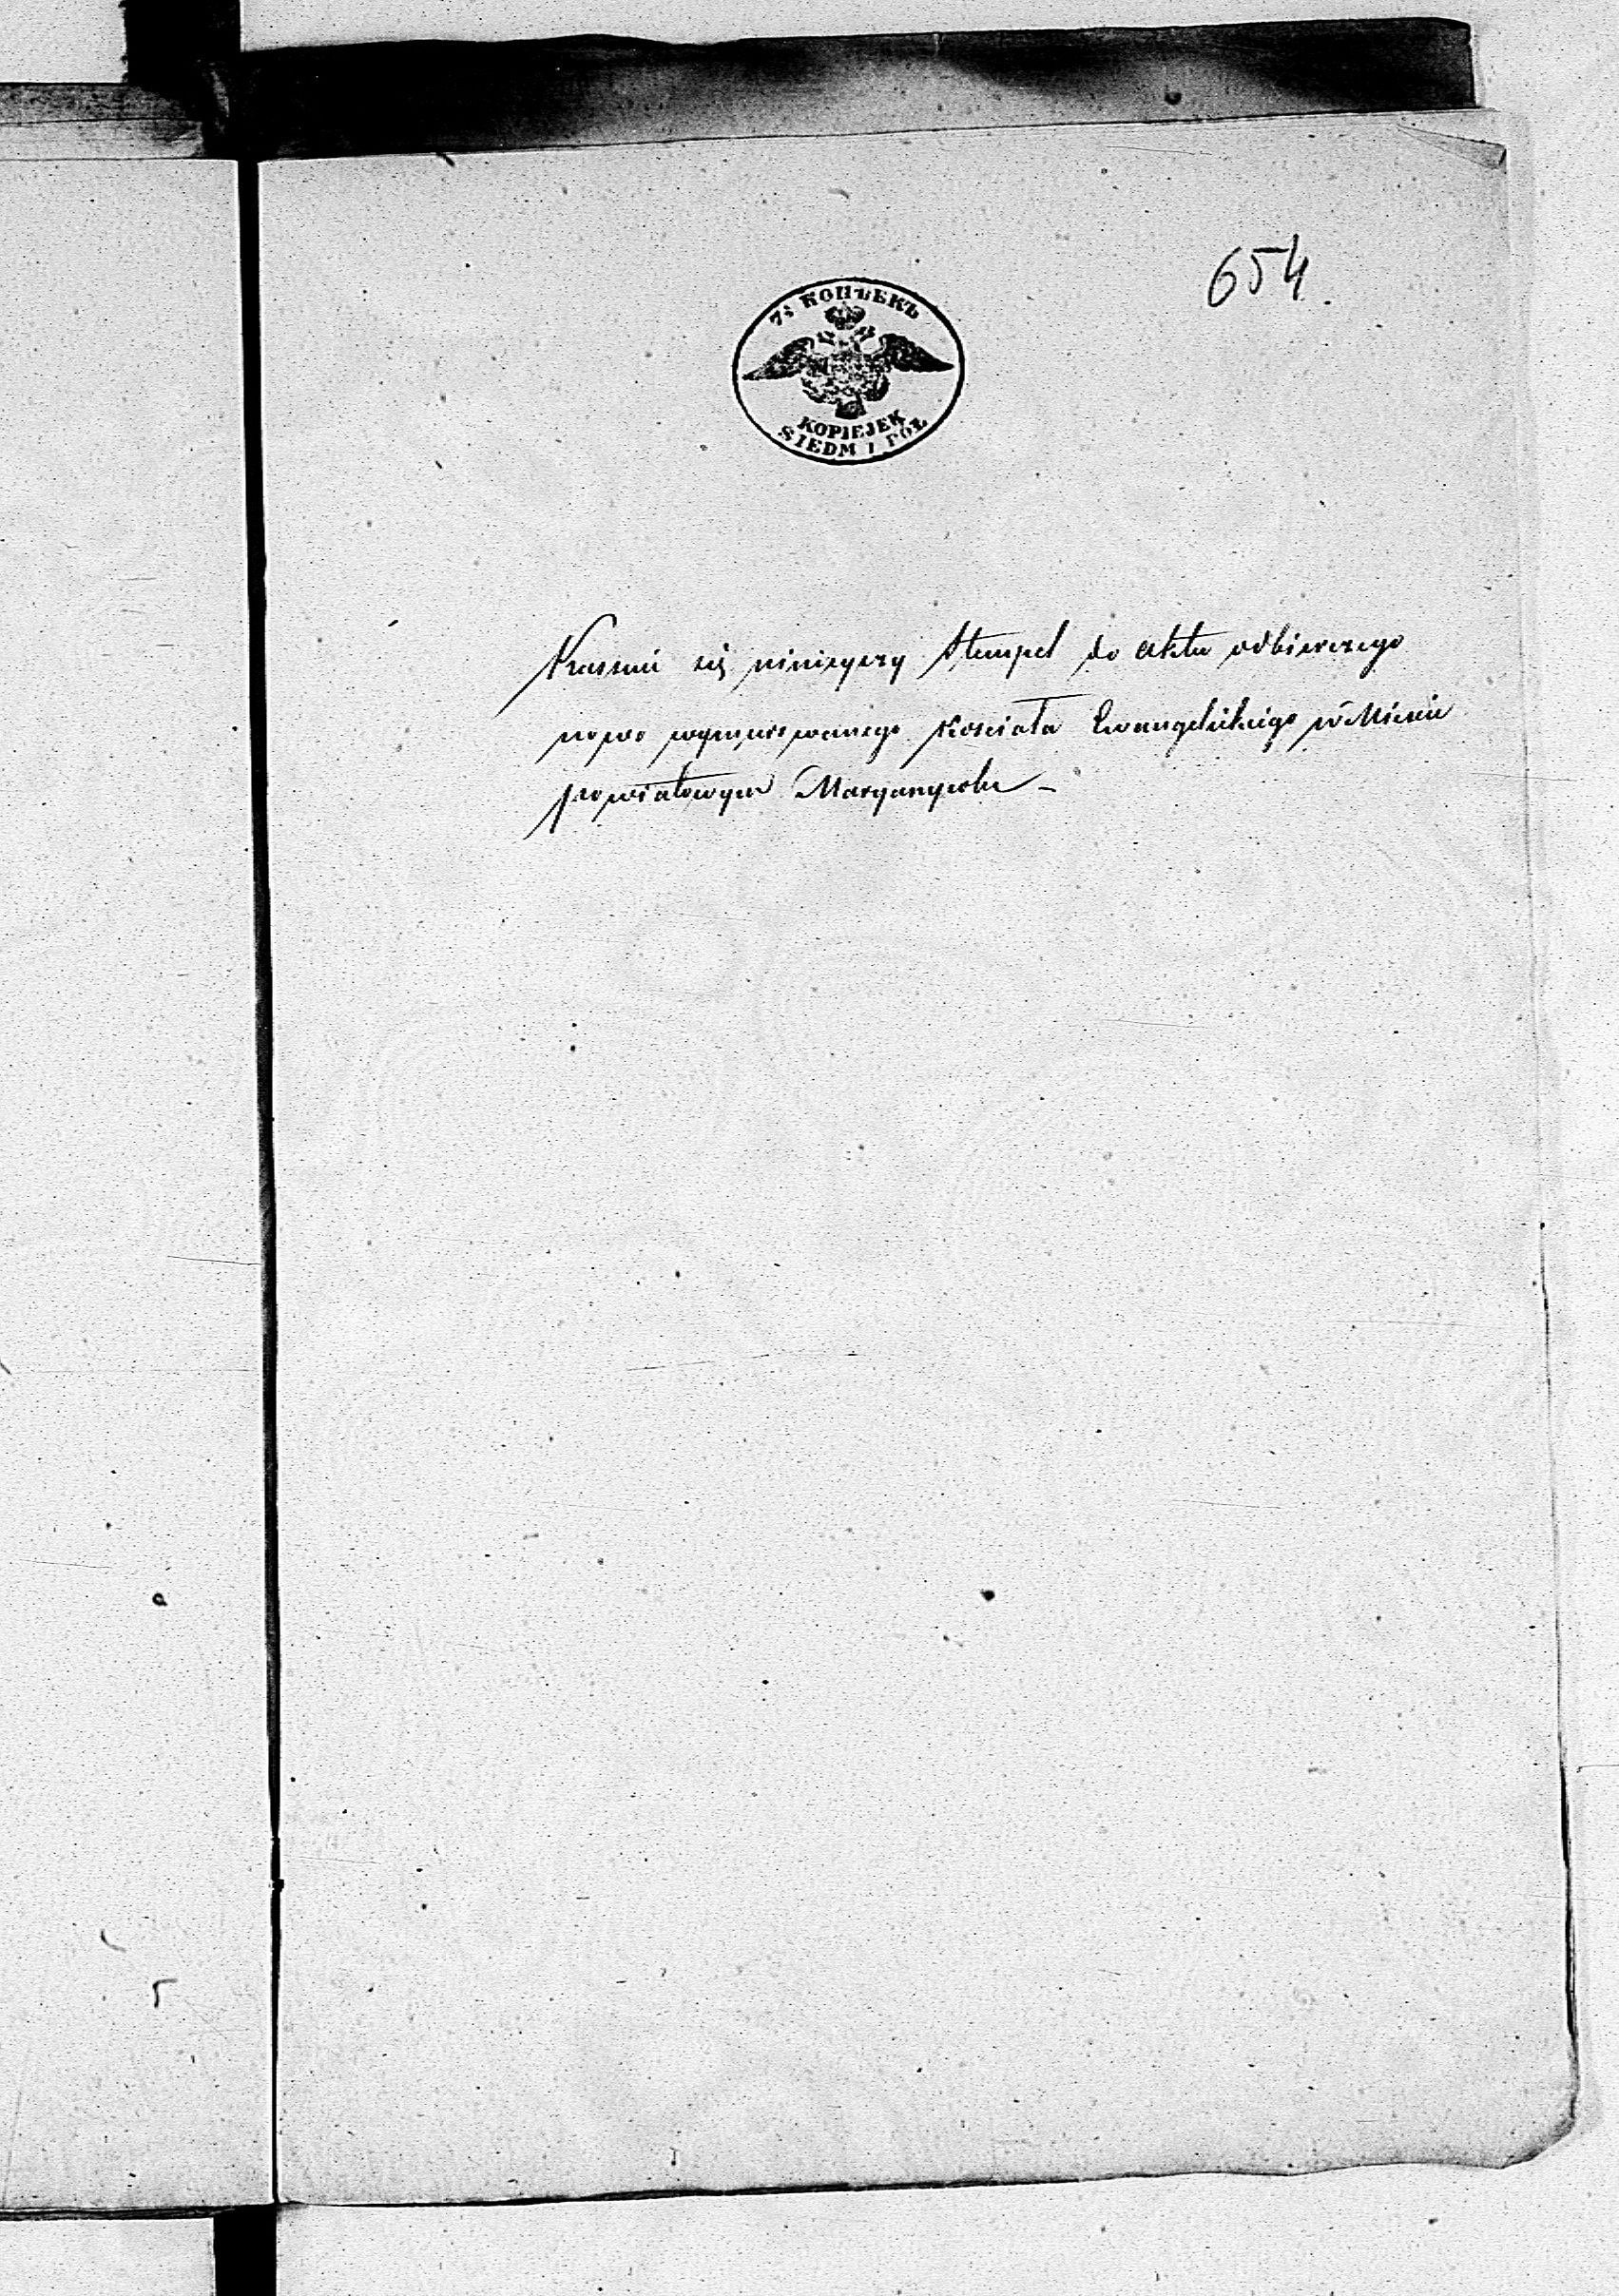 654.
7½ КОПѢЕКЪ
KOPIEJEK
SIEDM I PÓŁ
Kassuie się niniejszy Stempel do Aktu odbiorczego
nowo wymurowanego Kościoła Ewangelickiego w Mieście
powiatowym Maryampolu –